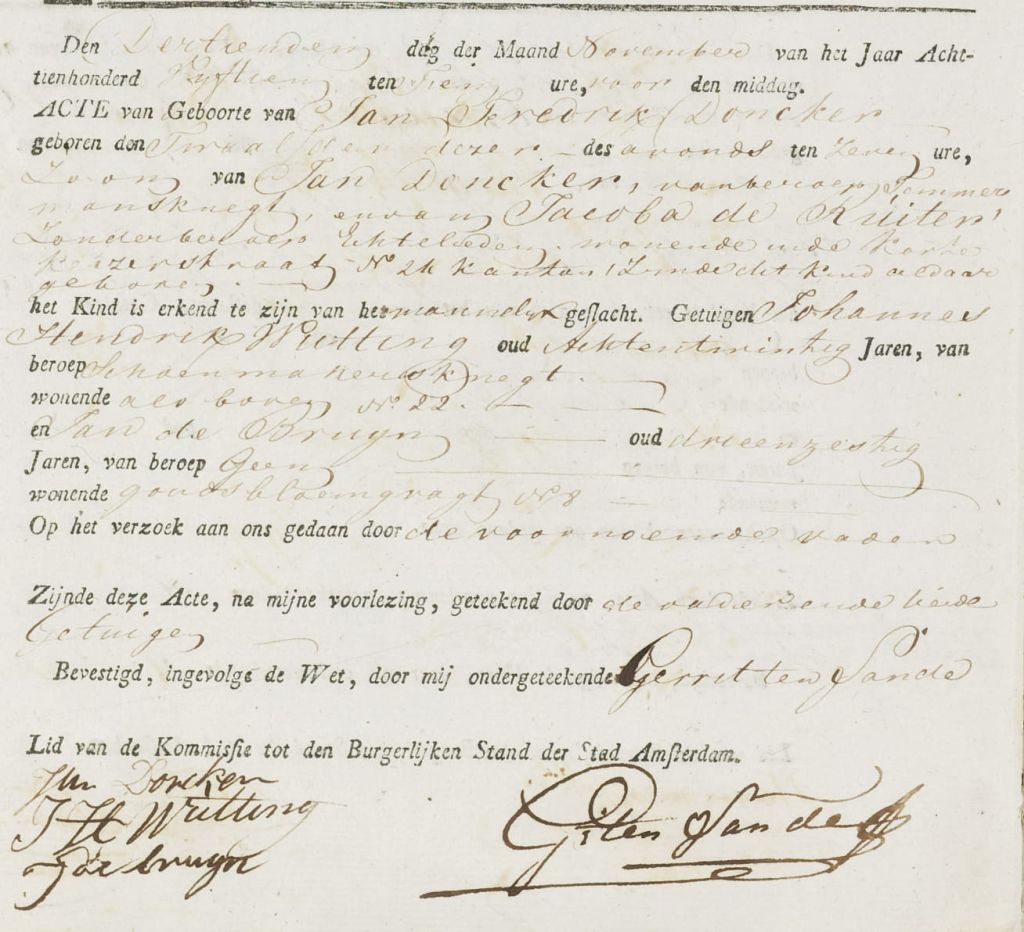 Den Dertienden dag der Maand November van het Jaar Acht-
tienhonderd Vyftien ten Tien ure, voor den middag.
ACTE van Geboorte van Jan Fredrik Doncker
geboren den Twaalfden dezer des avonds ten Zeven ure,
Zoon van Jan Doncker, van beroep Temmer
mansknegt, en van Jacoba de Ruiter
Zonder beroep Echtelieden wonende in de Korte
Keizerstraat No 24 Kanton 1 Zynde dit kind aldaar
geboren
het Kind is erkend te zijn van het mannelyk geslacht. Getuigen Johannes
Hendrik Wutting oud Achtentwintig Jaren, van
beroep Schoenmakersknegt
wonende als boven No. 22.
en Jan de Bruyn oud drieenzestig
Jaren, van beroep Geen
wonende goudsbloemgragt No 8
Op het verzoek aan ons gedaan door de voornoemde vader
Zijnde deze Acte, na mijne voorlezing, geteekend door de vader en de beide
Getuigen
Bevestigd, ingevolge de Wet, door mij ondergeteekende Gerrit ten Sande
Lid van de Kommissie tot den Burgerlijken Stand der Stad Amsterdam.
Jan Doncker
J H Wutting
J de bruyn
G ten Sande